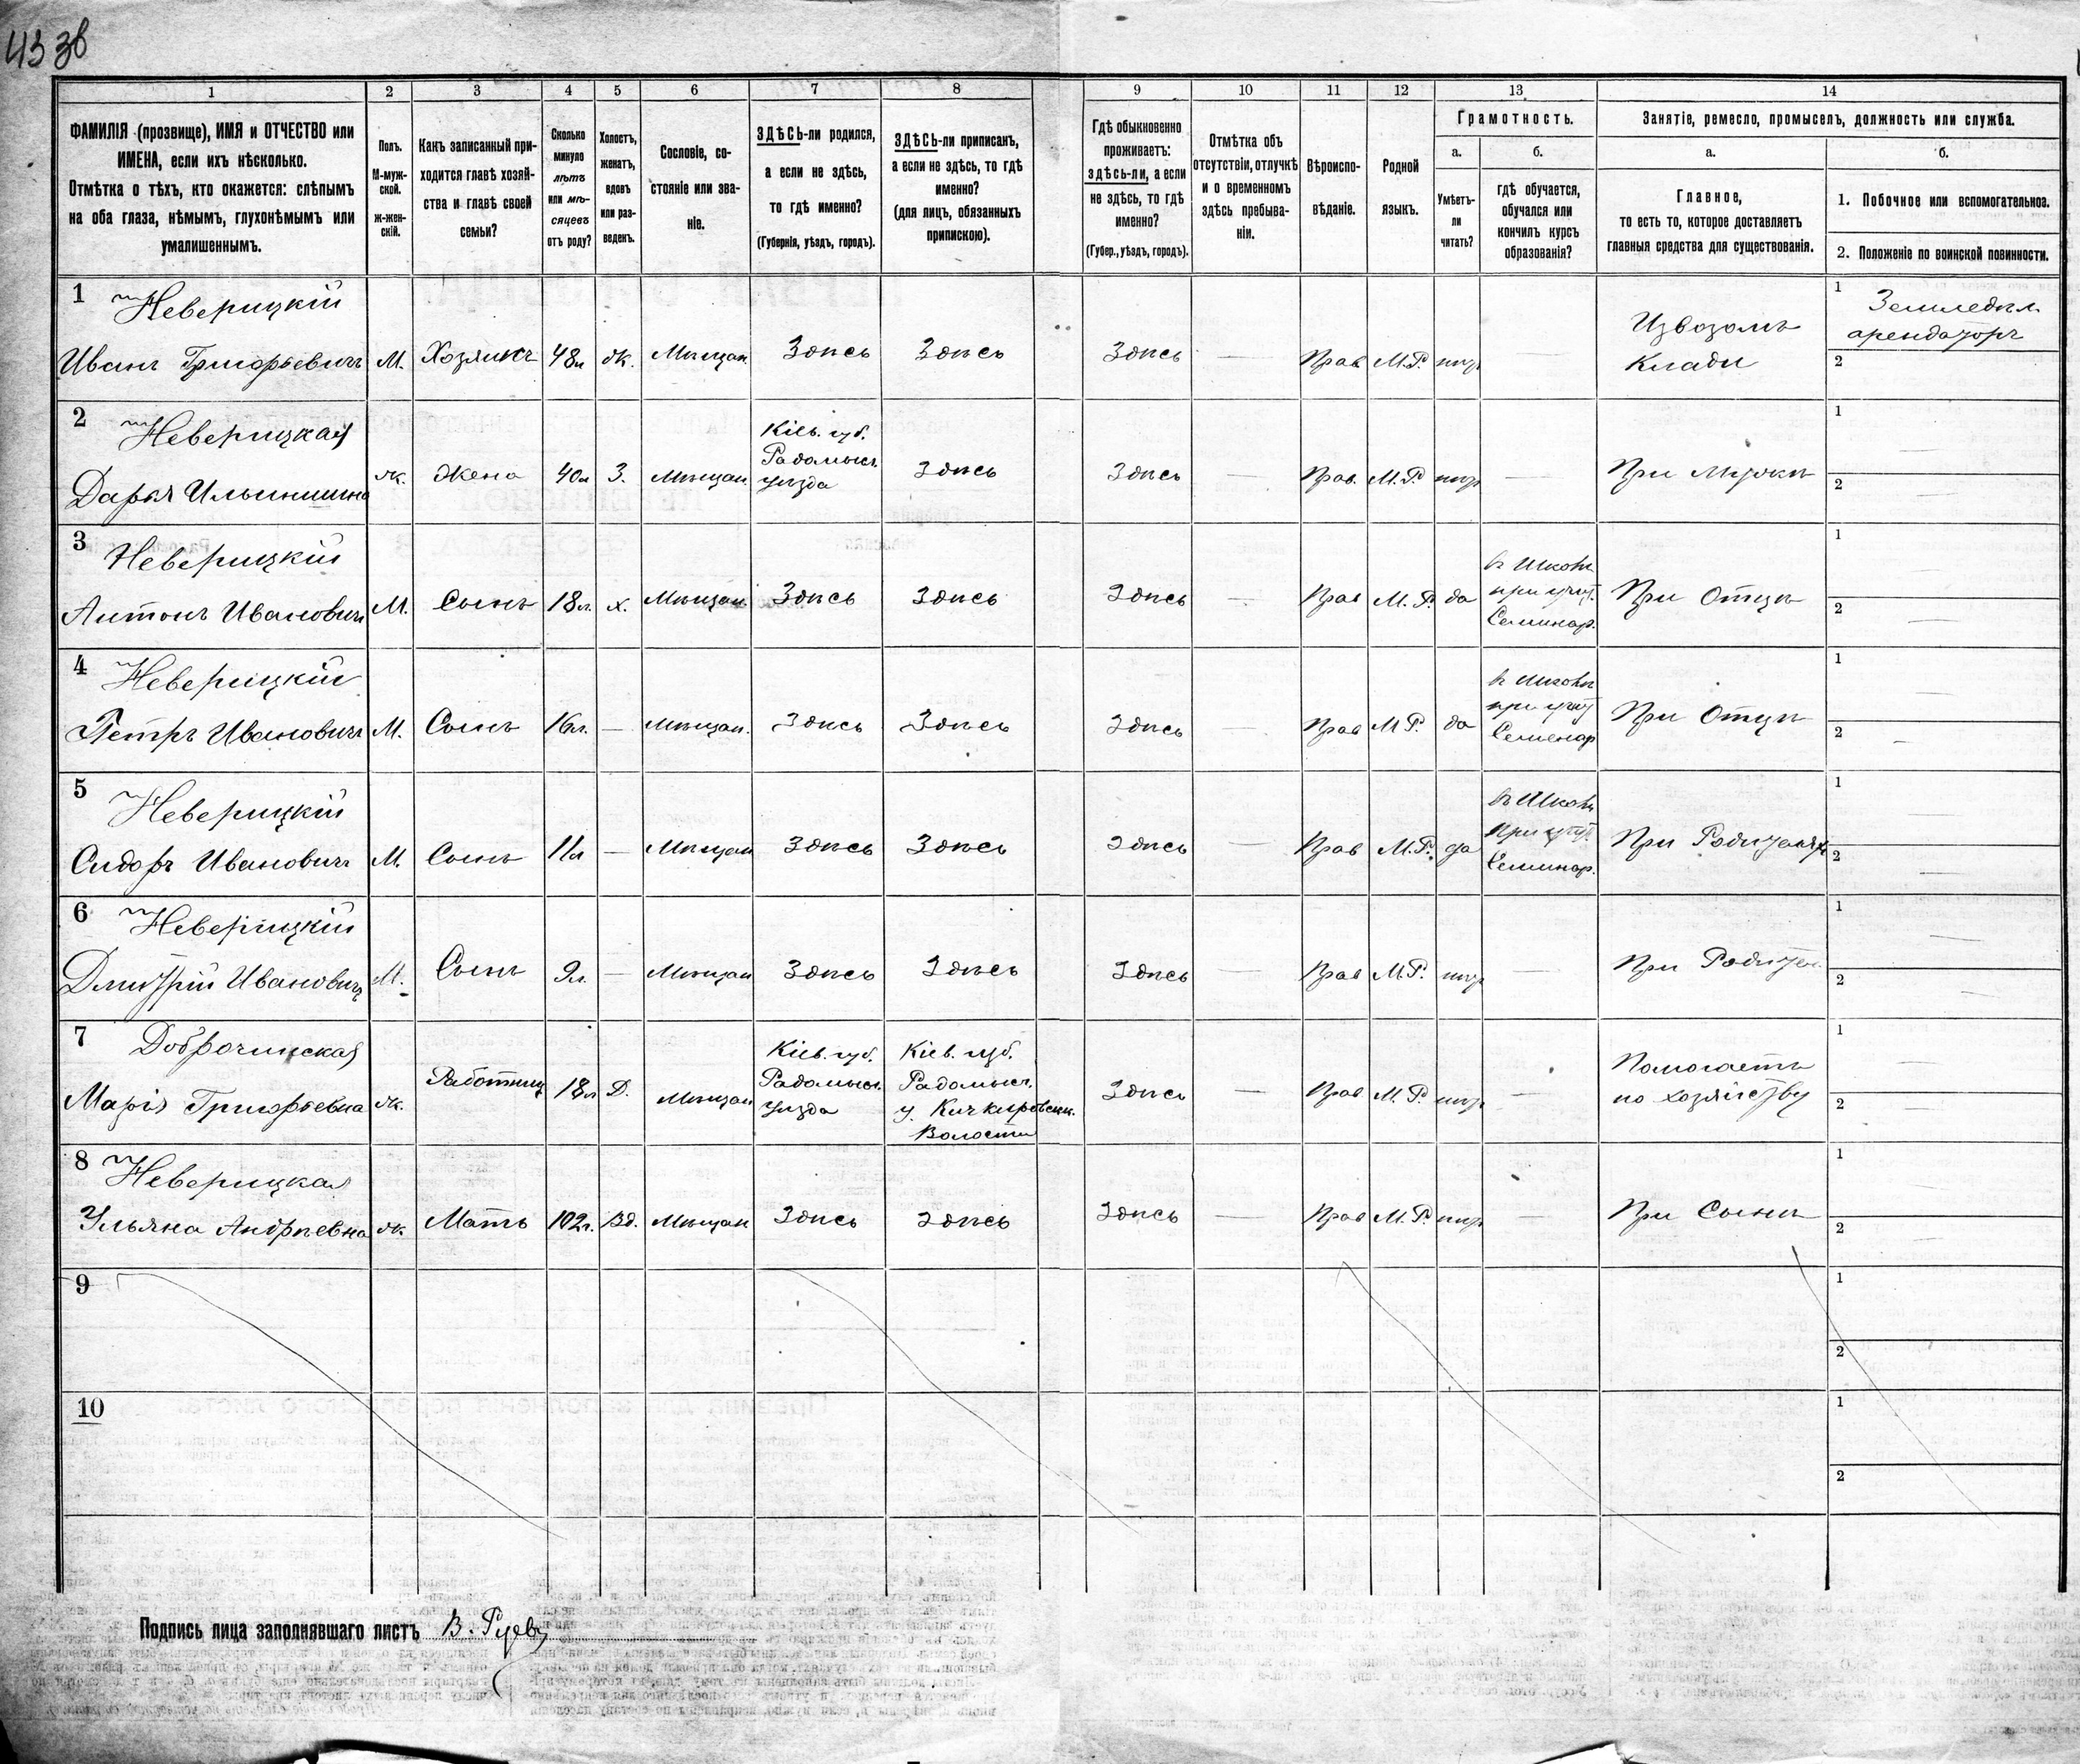 43 зв
1 2 3 4 5 6 7 8 9 10 11 12 13 14
ФАМИЛІЯ (прозвище), ИМЯ и ОТЧЕСТВО или
ИМЕНА, если ихъ нѣсколько.
Отмѣтка о тѣхъ, кто окажется: слѣпымъ
на оба глаза, нѣмымъ, глухонѣмымъ или
умалишеннымъ.
Полъ.
М-муж-
ской.
ж-жен-
скій.
Какъ записанный при-
ходится главѣ хозяй-
ства и главѣ своей
семьи?
Сколько
минуло
лѣтъ
или мѣ-
сяцевъ
отъ роду?
Холостъ,
женатъ,
вдовъ
или раз-
веденъ.
Сословіе, со-
стояніе или зва-
ніе.
ЗДѢСЬ-ли родился,
а если не здѣсь,
то гдѣ именно?
(Губернія, уѣздъ, городъ).
ЗДѢСЬ-ли приписанъ,
а если не здѣсь, то гдѣ
именно?
(для лицъ, обязанныхъ
припискою).
Гдѣ обыкновенно
проживаетъ:
здѣсь-ли, а если
не здѣсь, то гдѣ
именно?
(Губер., уѣздъ, городъ).
Отмѣтка объ
отсутствіи, отлучкѣ
и о временномъ
здѣсь пребыва-
ніи.
Вѣроиспо-
вѣданіе.
Родной
языкъ.
Грамотность.
а.
Умѣетъ-
ли
читать?
б.
гдѣ обучается,
обучался или
кончилъ курсъ
образованія?
Занятіе, ремесло, промыселъ, должность или служба.
а.
Главное,
то есть то, которое доставляетъ
главныя средства для существованія.
б.
1. Побочное или вспомогательное.
2. Положеніе по воинской повинности.
1 Неверицкій
Иванъ Григорьевичъ М. Хозяинъ 48л Ж. Мѣщан. Здѣсь Здѣсь Здѣсь — Прав М.Р. нѣтъ
Извозомъ
Клади
1 Земледѣл.
арендаторъ
2
2 Неверицкая
Дарья Ильинишна ж. Жена 40л З. Мѣщан.
Кіев. губ.
Радомысл.
уѣзда
Здѣсь Здѣсь — Прав. М.Р. нѣтъ — При Мужѣ
1
2
3 Неверицкій
Антонъ Ивановичъ М. Сынъ 18л. х. Мѣщан. Здѣсь Здѣсь Здѣсь — Прав М.Р. да
въ Школѣ
при учит.
Семинар.
При Отцѣ
1
2
4 Неверицкій
Петръ Ивановичъ М. Сынъ 16л. — Мѣщан. Здѣсь Здѣсь Здѣсь — Прав М.Р. да
въ Школѣ
при учит
Семенар
При Отцѣ
1
2
5 Неверицкій
Сидоръ Ивановичъ М. Сынъ 11л — Мѣщан Здѣсь Здѣсь Здѣсь — Прав М.Р. да
въ Школѣ
При учит.
Семинар.
При Родителяхъ
1
2
6 Неверицкій
Дмитрій Ивановичъ М. Сынъ 9л. — Мѣщан Здѣсь Здѣсь Здѣсь — Прав М.Р. нѣтъ При Родител.
1
2
7 Доброчинская
Марія Григорьевна ж. Работниц 18л Д. Мѣщан
Кіев. губ.
Радомысл.
уѣзда
Кіев. губ.
Радомысл.
у. Кичкировским.
Волости
Здѣсь — Прав М.Р. нѣтъ —
Помогаетъ
по хозяйству
1
2
8 Неверицкая
Ульяна Андрѣевна ж. Мать 102г. Вд. Мѣщан Здѣсь Здѣсь Здѣсь — Прав М.Р. нѣтъ — При Сынѣ
1
2
9
1
2
10
1
2
Подпись лица заполнявшаго листъ В.